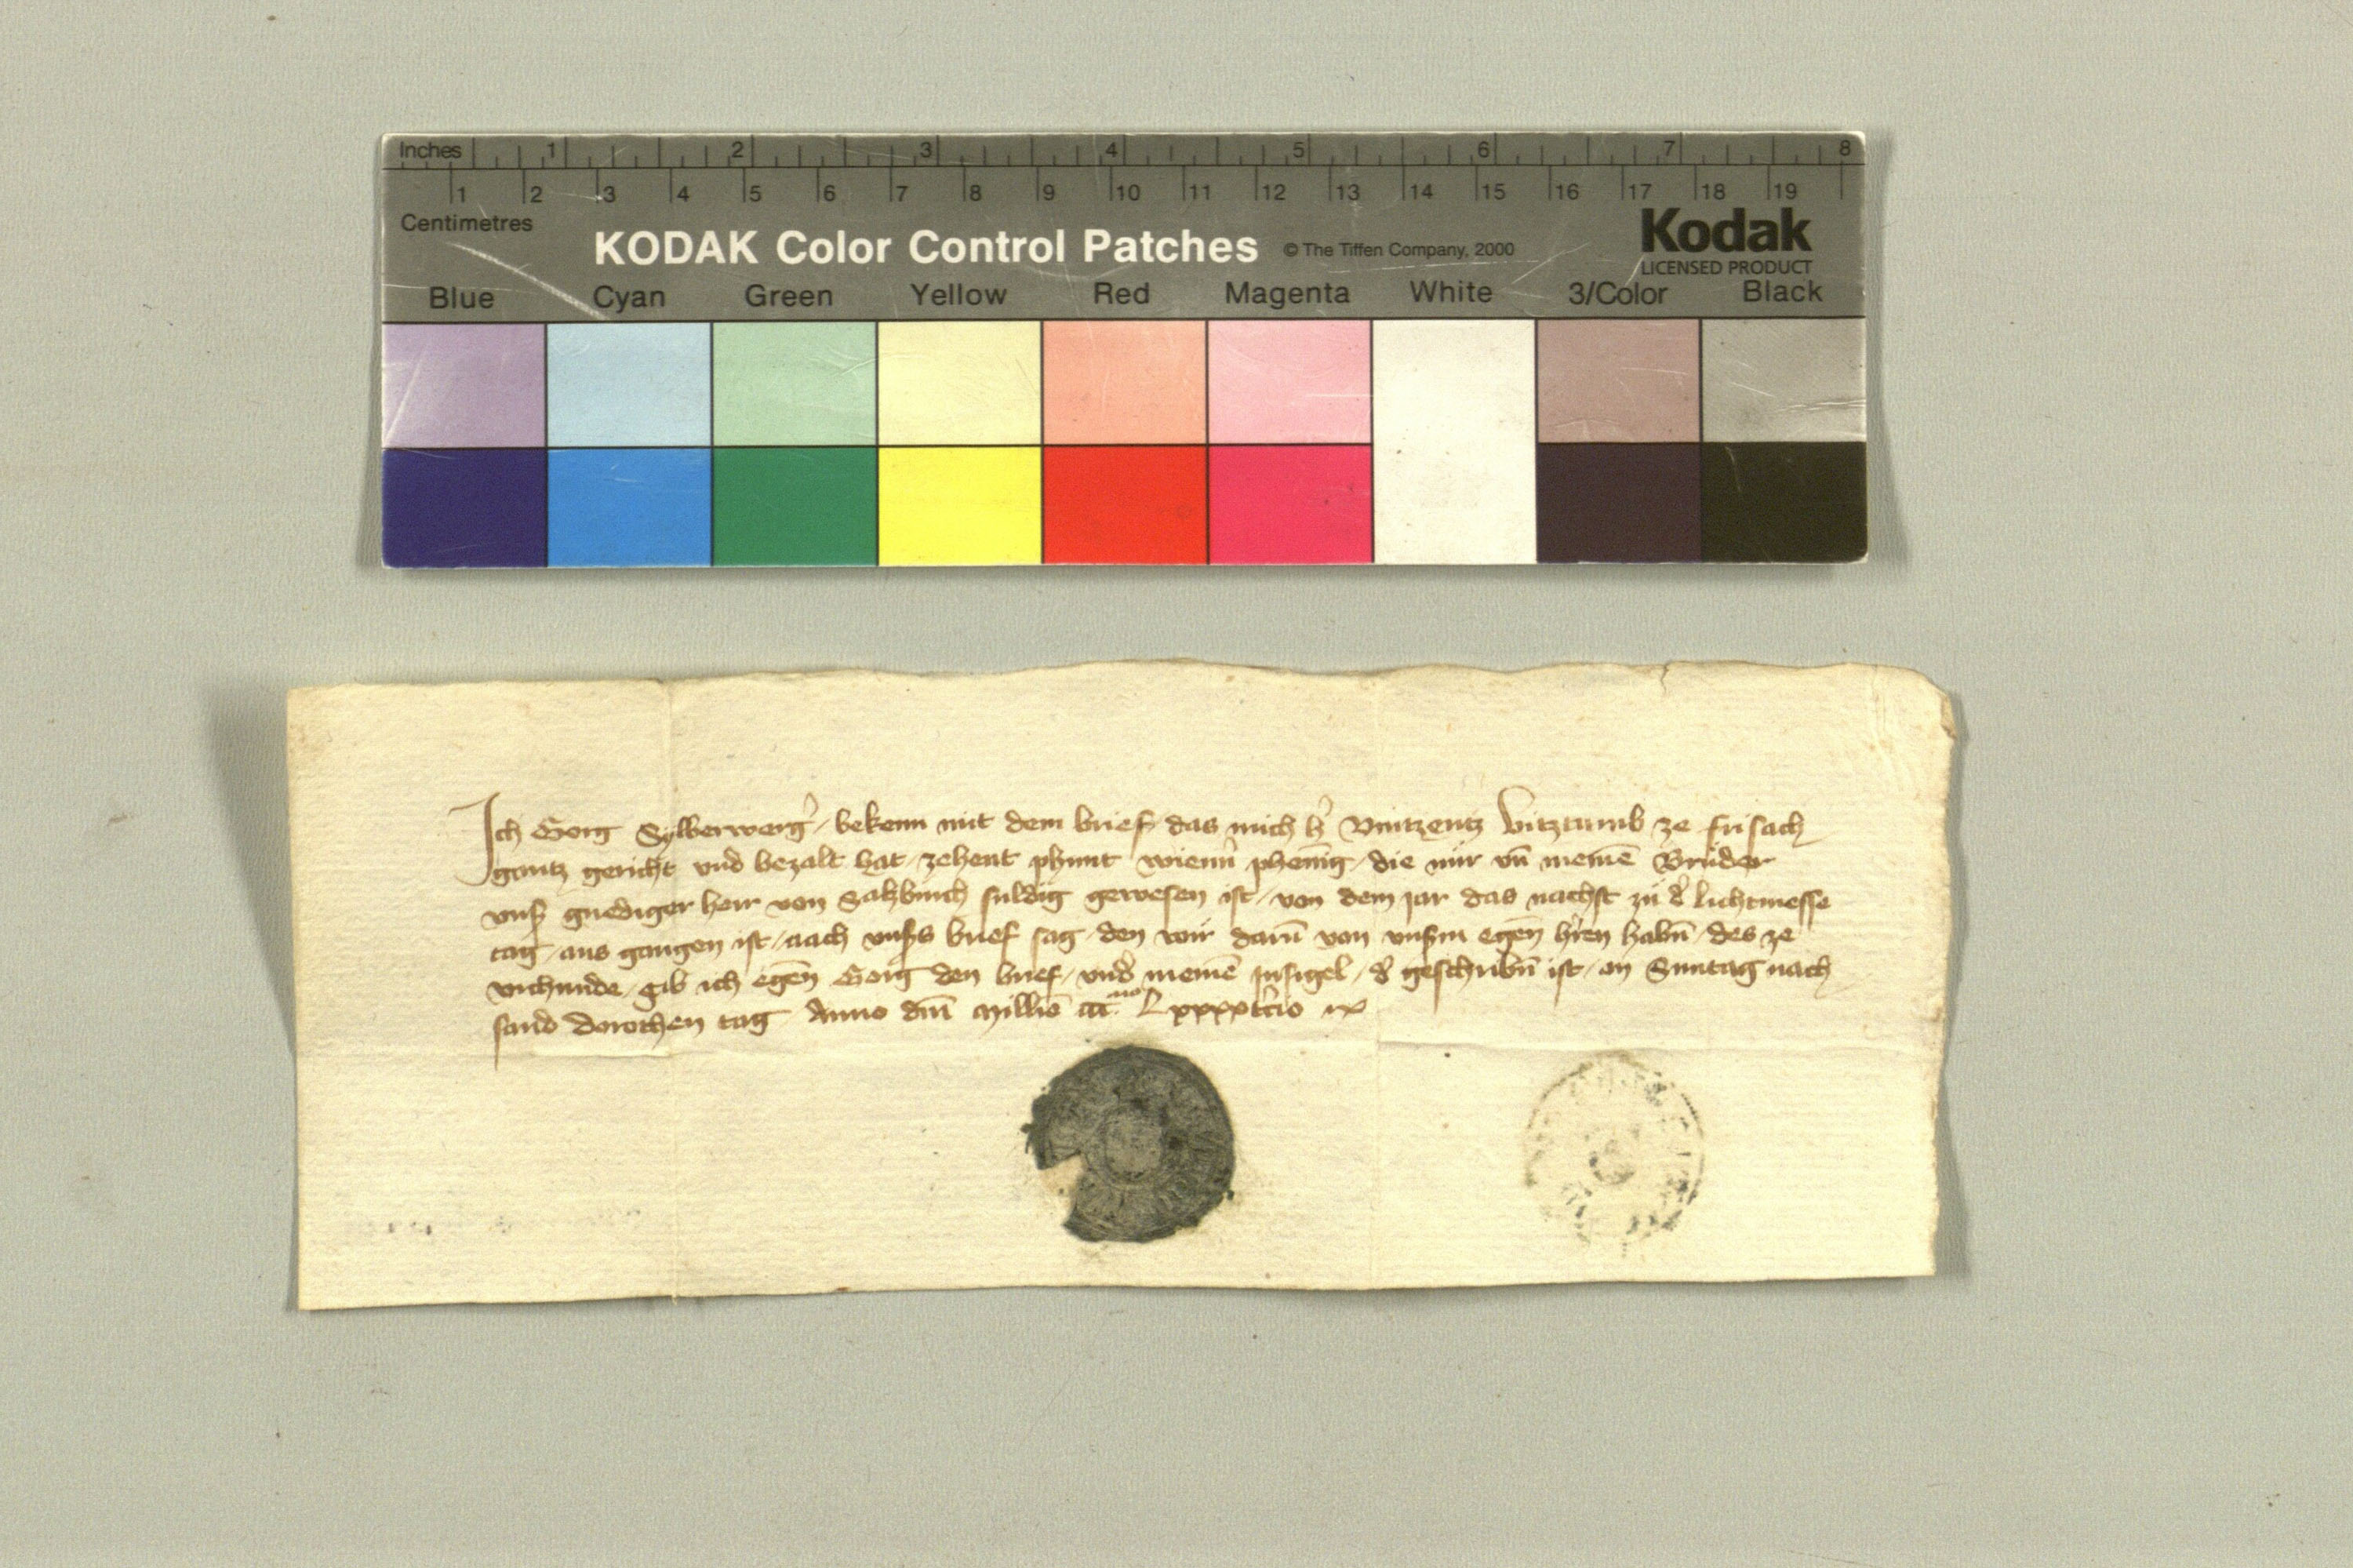 Inches 1 2 3 4 5 6 7 8
1 2 3 4 5 6 7 8 9 10 11 12 13 14 15 16 17 18 19
Centimetres
KODAK Color Control Patches © The Tiffen Company, 2000 Kodak
LICENSED PRODUCT
Blue Cyan Green Yellow Red Magenta White 3/Color Black
Ich Gorig Sylberwerg̾ / bekenn mit dem brief das mich h̾ Vintzentz Vitztumb ze frisach
gantz gericht und bezalt hat / zehent phunt wienn̾ phenīg / die mir vn̄ meinē Bruder
vnß gnediger herr von Salzburch suldig gewesen ist / von dem jar das nachst zu d̾ lichtmesse
tag / aus gangen ist / nach vnßs brief sag / den wir darū von vnßm egen̄ h̾ren habn̄ / des ze
vrchunde / gib ich egen̄ Gorig den brief / vnd̾ meinē Insigel / d̾ geschribn̄ ist / an Suntag nach
sand dorothen tag Anno dnī Millīo ccc̄ Lxxxxt̾cio